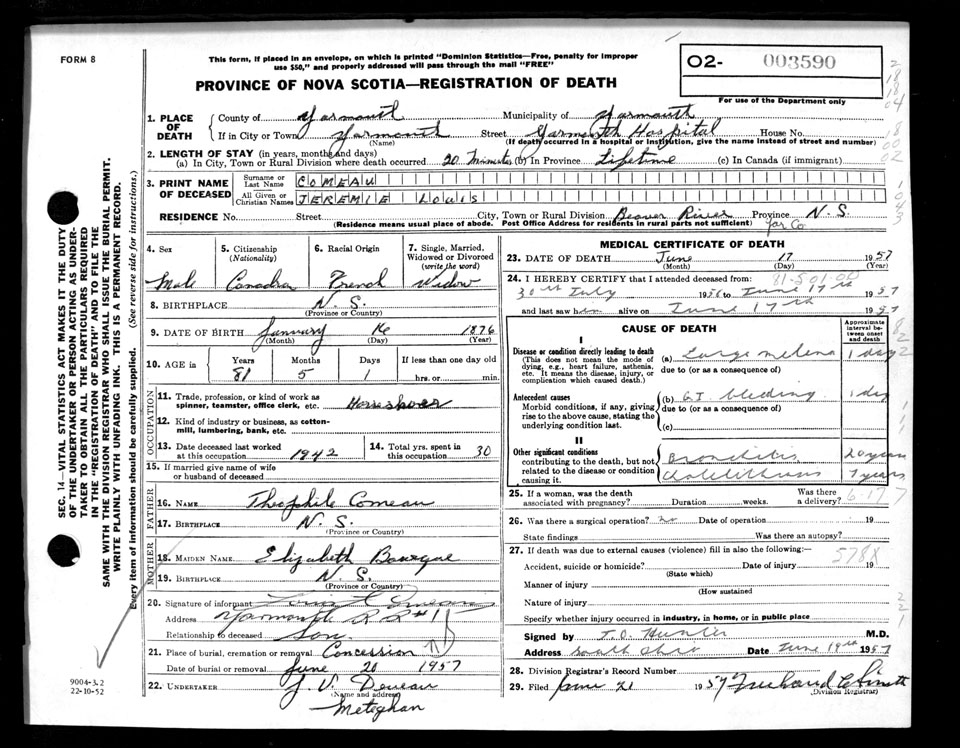 FORM 8
This form, if placed in an envelope, on which is printed "Dominion Statistics—Free, penalty for improper
use $50," and properly addressed will pass through the mail "FREE"
PROVINCE OF NOVA SCOTIA—REGISTRATION OF DEATH
O2- 003590
For use of the Department only
1. PLACE OF DEATH
County of Yarmouth Municipality of Yarmouth
If in City or Town Yarmouth Street Yarmouth Hospital House No.
(Name) (If death occurred in a hospital or institution, give the name instead of street and number)
2. LENGTH OF STAY (in years, months and days)
(a) In City, Town or Rural Division where death occurred 20 Minutes (b) In Province Lifetime (c) In Canada (if immigrant)
3. PRINT NAME OF DECEASED
Surname or Last Name COMEAU
All Given or Christian Names JEREMIE LOUIS
RESIDENCE No. Street City, Town or Rural Division Beaver River Province N.S.
(Residence means usual place of abode. Post Office Address for residents in rural parts not sufficient) Yar Co.
4. Sex Male
5. Citizenship (Nationality) Canadian
6. Racial Origin French
7. Single, Married, Widowed or Divorced (write the word) Widow
8. BIRTHPLACE N.S.
(Province or Country)
9. DATE OF BIRTH January 16 1876
(Month) (Day) (Year)
10. AGE in Years 81 Months 5 Days 1 If less than one day old
hrs. or min.
OCCUPATION
11. Trade, profession, or kind of work as
spinner, teamster, office clerk, etc. Horseshoer
12. Kind of industry or business, as cotton-
mill, lumbering, bank, etc.
13. Date deceased last worked
at this occupation 1942
14. Total yrs. spent in
this occupation 30
15. If married give name of wife
or husband of deceased
FATHER
16. NAME Theophile Comeau
17. BIRTHPLACE N.S.
(Province or Country)
MOTHER
18. MAIDEN NAME Elizabeth Bourque
19. BIRTHPLACE N.S.
(Province or Country)
20. Signature of informant Comeau
Address Yarmouth R R #1
Relationship to deceased Son.
21. Place of burial, cremation or removal Concession
Date of burial or removal June 20 1957
22. UNDERTAKER J. V. Deveau
(Name and address)
Meteghan
MEDICAL CERTIFICATE OF DEATH
23. DATE OF DEATH June 17 1957
(Month) (Day) (Year)
81-501-00
24. I HEREBY CERTIFY that I attended deceased from:
30th July 1956 to June 17th 1957
and last saw him alive on June 17th 1957
CAUSE OF DEATH
Approximate interval between onset and death
I
Disease or condition directly leading to death
(This does not mean the mode of
dying, e.g., heart failure, asthenia,
etc. It means the disease, injury, or
complication which caused death.)
(a) Large melena 1 day
due to (or as a consequence of)
Antecedent causes
Morbid conditions, if any, giving
rise to the above cause, stating the
underlying condition last.
(b) G.I. bleeding 1 day
due to (or as a consequence of)
(c)
II
Other significant conditions
contributing to the death, but not
related to the disease or condition
causing it.
Bronchitis 20 years
Cholelithiasis 7 years
25. If a woman, was the death
associated with pregnancy? Duration weeks. Was there
a delivery?
26. Was there a surgical operation? no Date of operation 19
State findings Was there an autopsy?
27. If death was due to external causes (violence) fill in also the following:—
5788
Accident, suicide or homicide? Date of injury 19
(State which)
Manner of injury
(How sustained
Nature of injury
Specify whether injury occurred in industry, in home, or in public place
Signed by J. O. Hunter M.D.
Address South Ohio Date June 19th 1957
28. Division Registrar's Record Number
29. Filed June 21 1957
(Division Registrar)
SEC. 14—VITAL STATISTICS ACT MAKES IT THE DUTY
OF THE UNDERTAKER OR PERSON ACTING AS UNDER-
TAKER TO OBTAIN ALL THE PARTICULARS REQUIRED
IN THE "REGISTRATION OF DEATH" AND TO FILE THE
SAME WITH THE DIVISION REGISTRAR WHO SHALL ISSUE THE BURIAL PERMIT.
WRITE PLAINLY WITH UNFADING INK. THIS IS A PERMANENT RECORD.
Every item of information should be carefully supplied. (See reverse side for instructions.)
9004-3.2
22-10-52